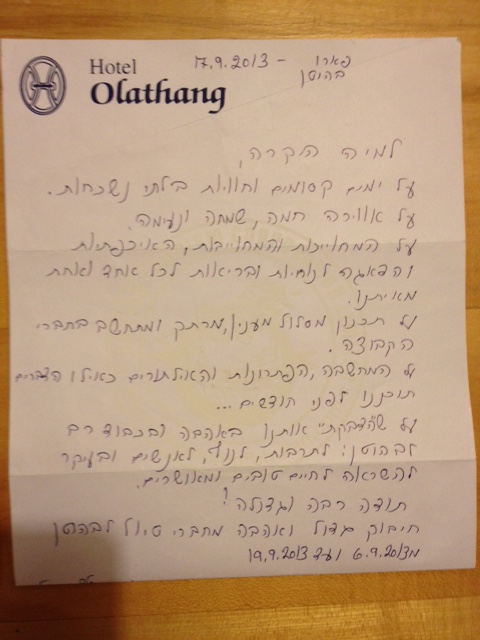 Hotel
Olathang
פארו - 17.9.2013
בהוטן
למיה היקרה,
על ימים קסומים וחוויות בילתי נשכחות.
על אווירה חמה, שמחה ונעימה.
על המחוייכות והמחוייבות, האיכפתיות
והדאגה לנוחיות ובריאות לכל אחד ואחת
מאיתנו.
על תכנון מסלול מענין, מרתק ומתחשב בחברי
הקבוצה.
על המחשבה, הפתרונות והאילתורים כאילו הדברים
תוכננו לפני חודשים...
על ש"הדבקת" אותנו באהבה ובכבוד רב
לבהוטן: לתרבות, לנוף, לאנשים ובעיקר
להשראה לחיים טובים ומאושרים.
תודה רבה וגדולה!
חיבוק גדול ואהבה מחברי טיול לבהוטן
מ6.9.2013 ועד 19.9.2013